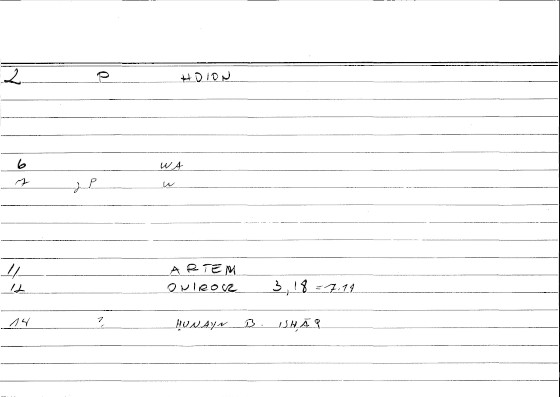 2 P HDION
6 WA
7 2 P W
11 ARTEM
12 ONIROCR 3,18 = 7.19
14 ? ḤUNAYN B. ISḤĀQ